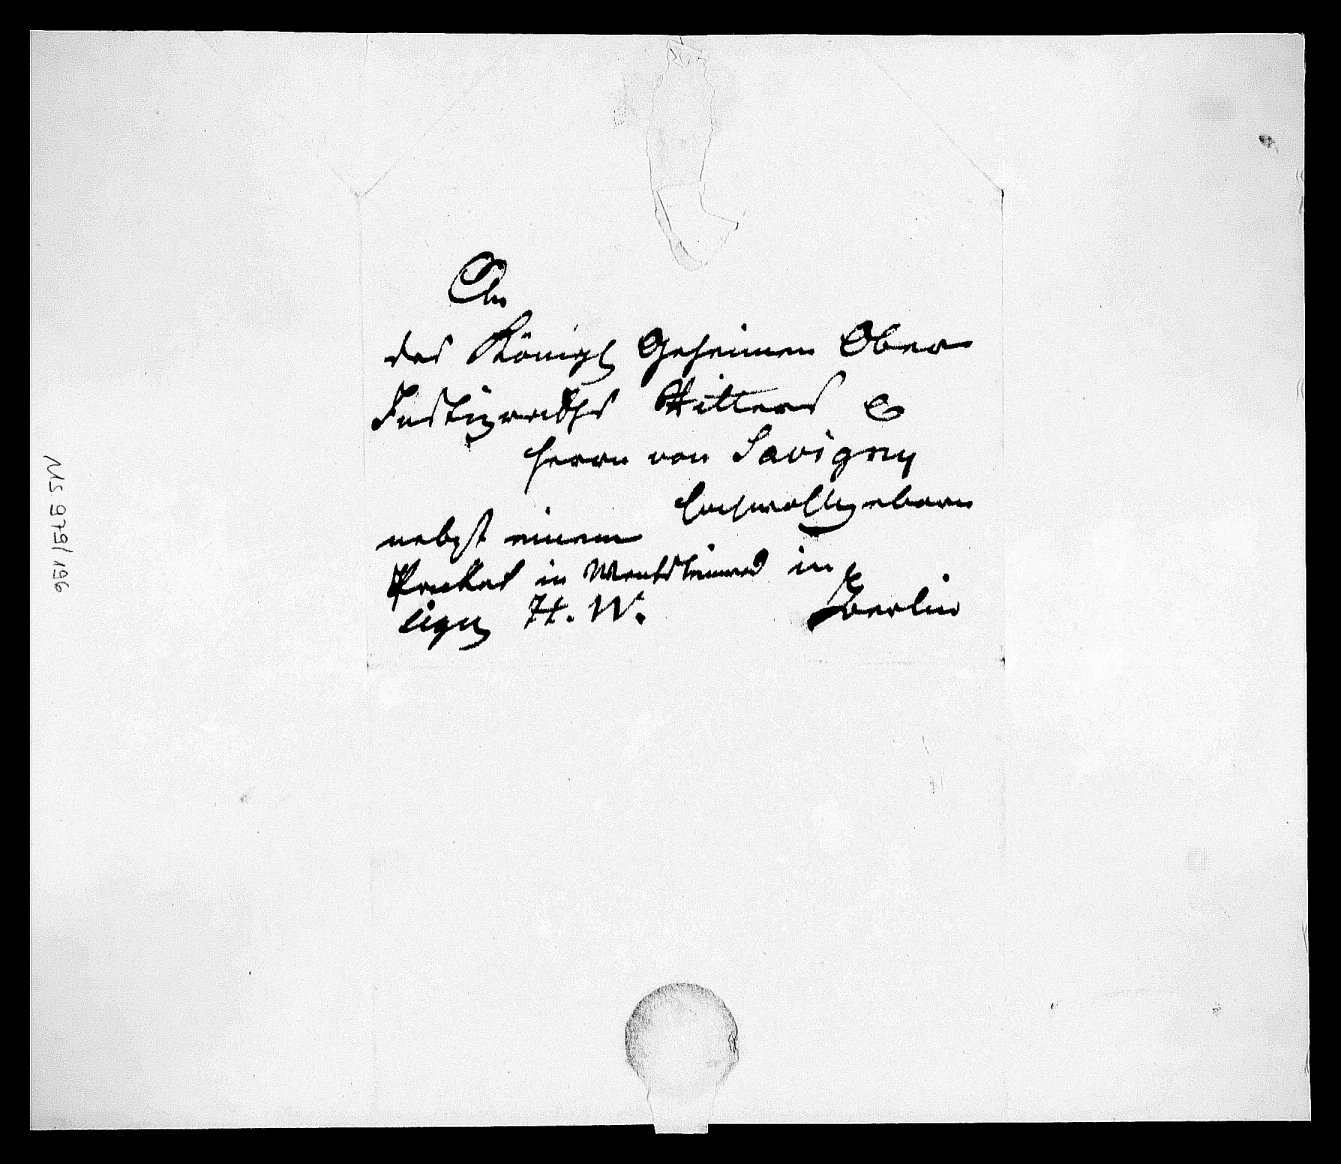 An
des Königl Geheimen Ober
Justizraths Ritters
Herrn von Savigny
Hochwohlgeborn
nebst einem
Packet in Wachsleinwd in
sign H. W. Berlin
MS 979/196